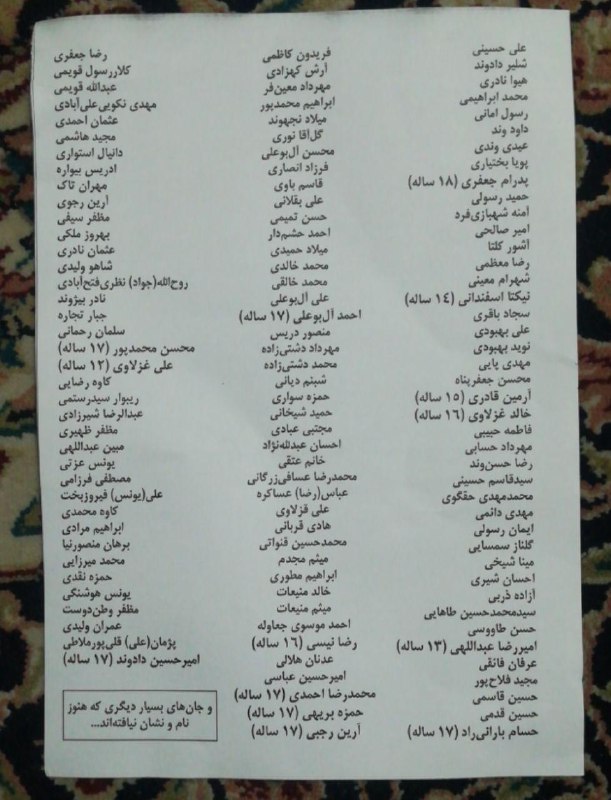 علی حسینی
شلیر دادوند
هیوا نادری
محمد ابراهیمی
رسول امانی
داود وند
عیدی وندی
پویا بختیاری
پدرام جعفری (۱۸ ساله)
حمید رسولی
آمنه شهبازی‌فرد
امیر صالحی
آشور کلتا
رضا معظمی
شهرام معینی
نیکتا اسفندانی (۱٤ ساله)
سجاد باقری
علی بهبودی
نوید بهبودی
مهدی پاپی
محسن جعفرپناه
آرمین قادری (۱۵ ساله)
خالد غزلاوی (۱۶ ساله)
فاطمه حبیبی
مهرداد حسابی
رضا حسن‌وند
سیدقاسم حسینی
محمدمهدی حقگوی
مهدی دائمی
ایمان رسولی
گلناز سمسایی
مینا شیخی
احسان شیری
آزاده ذربی
سیدمحمدحسین طاهایی
حسن طاووسی
امیررضا عبداللهی (۱۳ ساله)
عرفان فائقی
مجید فلاح‌پور
حسین قاسمی
حسین قدمی
حسام بارانی‌راد (۱۷ ساله)
فریدون کاظمی
آرش کهزادی
مهرداد معین‌فر
ابراهیم محمدپور
میلاد نجهوند
گل‌آقا نوری
محسن آل‌بوعلی
فرزاد انصاری
قاسم باوی
علی بقلانی
حسن تمیمی
احمد حشم‌دار
میلاد حمیدی
محمد خالدی
محمد خالقی
علی آل‌بوعلی
احمد آل‌بوعلی (۱۷ ساله)
منصور دریس
مهرداد دشتی‌زاده
محمد دشتی‌زاده
شبنم دیانی
حمزه سواری
حمید شیخانی
مجتبی عبادی
احسان عبدالله‌نژاد
خانم عتقی
محمدرضا عسافی‌زرگانی
عباس(رضا) عساکره
علی قزلاوی
هادی قربانی
محمدحسین قنواتی
میثم مجدم
ابراهیم مطوری
خالد منیعات
میثم منیعات
احمد موسوی جعاوله
رضا نیسی (۱۶ ساله)
عدنان هلالی
امیرحسین عباسی
محمدرضا احمدی (۱۷ ساله)
حمزه بریهی (۱۷ ساله)
آرین رجبی (۱۷ ساله)
رضا جعفری
کلاررسول قویمی
عبدالله قویمی
مهدی نکویی‌علی‌آبادی
عثمان احمدی
مجید هاشمی
دانیال استواری
ادریس بیواره
مهران تاک
آرین رجوی
مظفر سیفی
بهروز ملکی
عثمان نادری
شاهو ولیدی
روح‌الله(جواد) نظری‌فتح‌آبادی
نادر بیژوند
جبار تجاره
سلمان رحمانی
محسن محمدپور (۱۷ ساله)
علی غزلاوی (۱۲ ساله)
کاوه رضایی
ریبوار سیدرستمی
عبدالرضا شیرزادی
مظفر ظهیری
مبین عبداللهی
یونس عزتی
مصطفی فرزامی
علی(یونس) فیروزبخت
کاوه محمدی
ابراهیم مرادی
برهان منصورنیا
محمد میرزایی
حمزه نقدی
یونس هوشنگی
مظفر وطن‌دوست
عمران ولیدی
پژمان(علی) قلی‌پورملاطی
امیرحسین دادوند (۱۷ ساله)
و جان‌های بسیار دیگری که هنوز
نام و نشان نیافته‌اند...